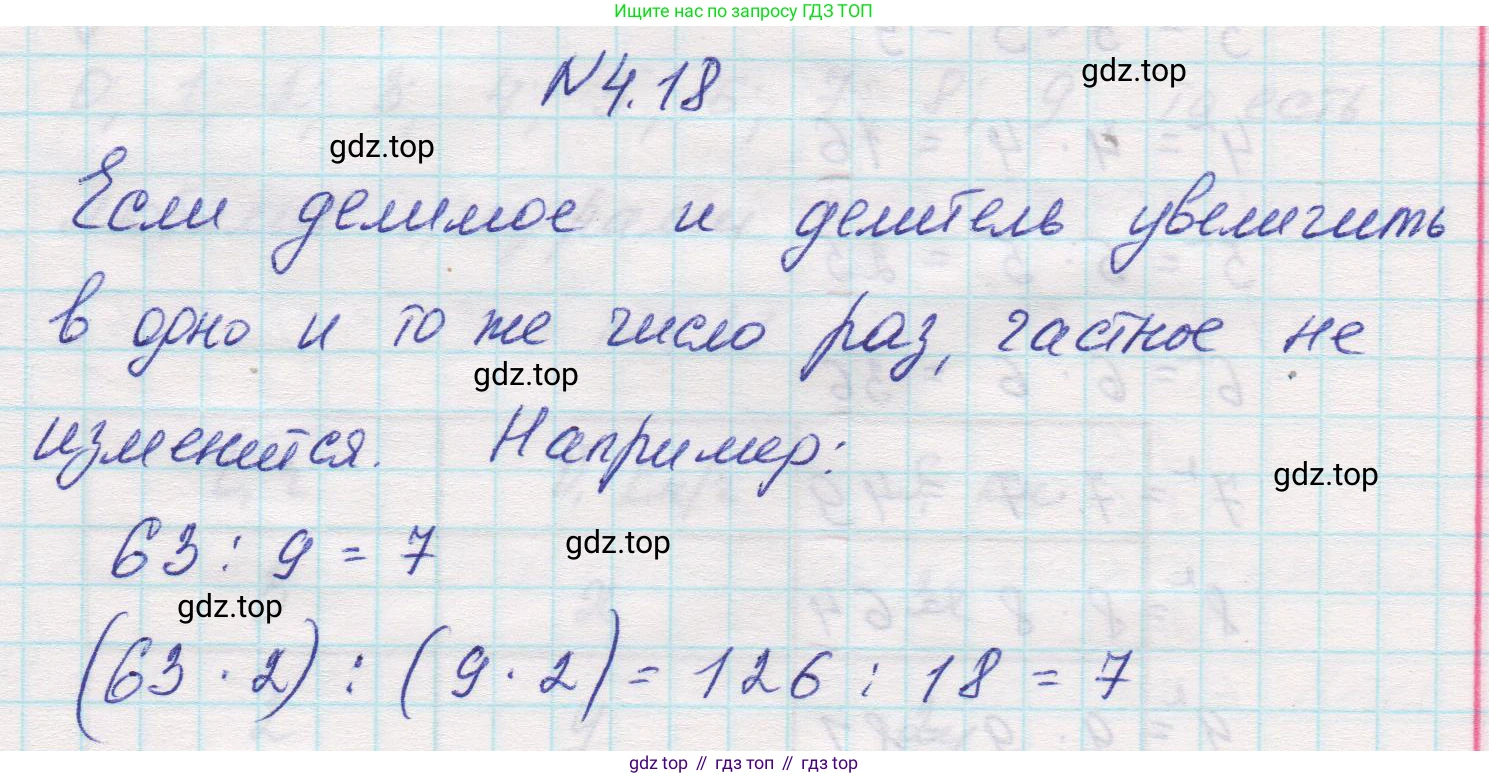 Ищите нас по запросу ГДЗ ТОП
N 4.18
gdz.top
gdz.top
Если делимое и делитель увеличить
в одно и то же число раз, частное не
gdz.top
изменится. Например:
gdz.top
63 : 9 = 7
gdz.top
gdz.top
(63 · 2) : (9 · 2) = 126 : 18 = 7
gdz.top // гдз топ // гдз top